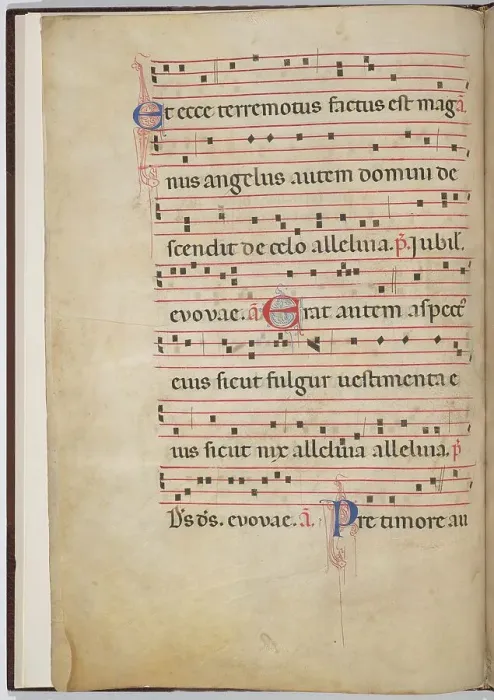 Et ecce terremotus factus est mag ā
nus angelus autem domini de
scendit de celo alleluia. p̄. Jubil̄.
evovae. ā Erat autem aspect᷒
eius sicut fulgur vestimenta e
ius sicut nix alleluia alleluia. p̄
D̄s d̄s. evovae. ā. Pre timore au